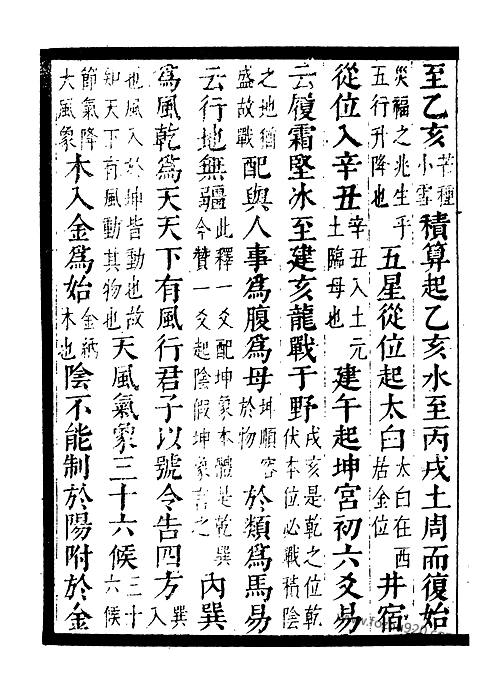 至乙亥芒種小雪積算起乙亥水至丙戌土周而復始
災福之兆生乎五行升降也五星從位起太白太白在西居金位井宿
從位入辛丑辛丑入土元土臨母也建午起坤宮初六爻易
云履霜堅冰至建亥龍戰于野戌亥是乾之位乾伏本位必戰積陰
之地猶盛故戰配與人事為腹為母坤順容於物於類為馬易
云行地無疆此釋一爻配坤象本體是乾巽今贊一爻起陰假坤象言之內巽
為風乾為天天下有風行君子以號令告四方巽入
也風入於坤皆動也故知天下有風動其物也天風氣象三十六候三十六候
節氣降大風象木入金為始金納木也陰不能制於陽附於金